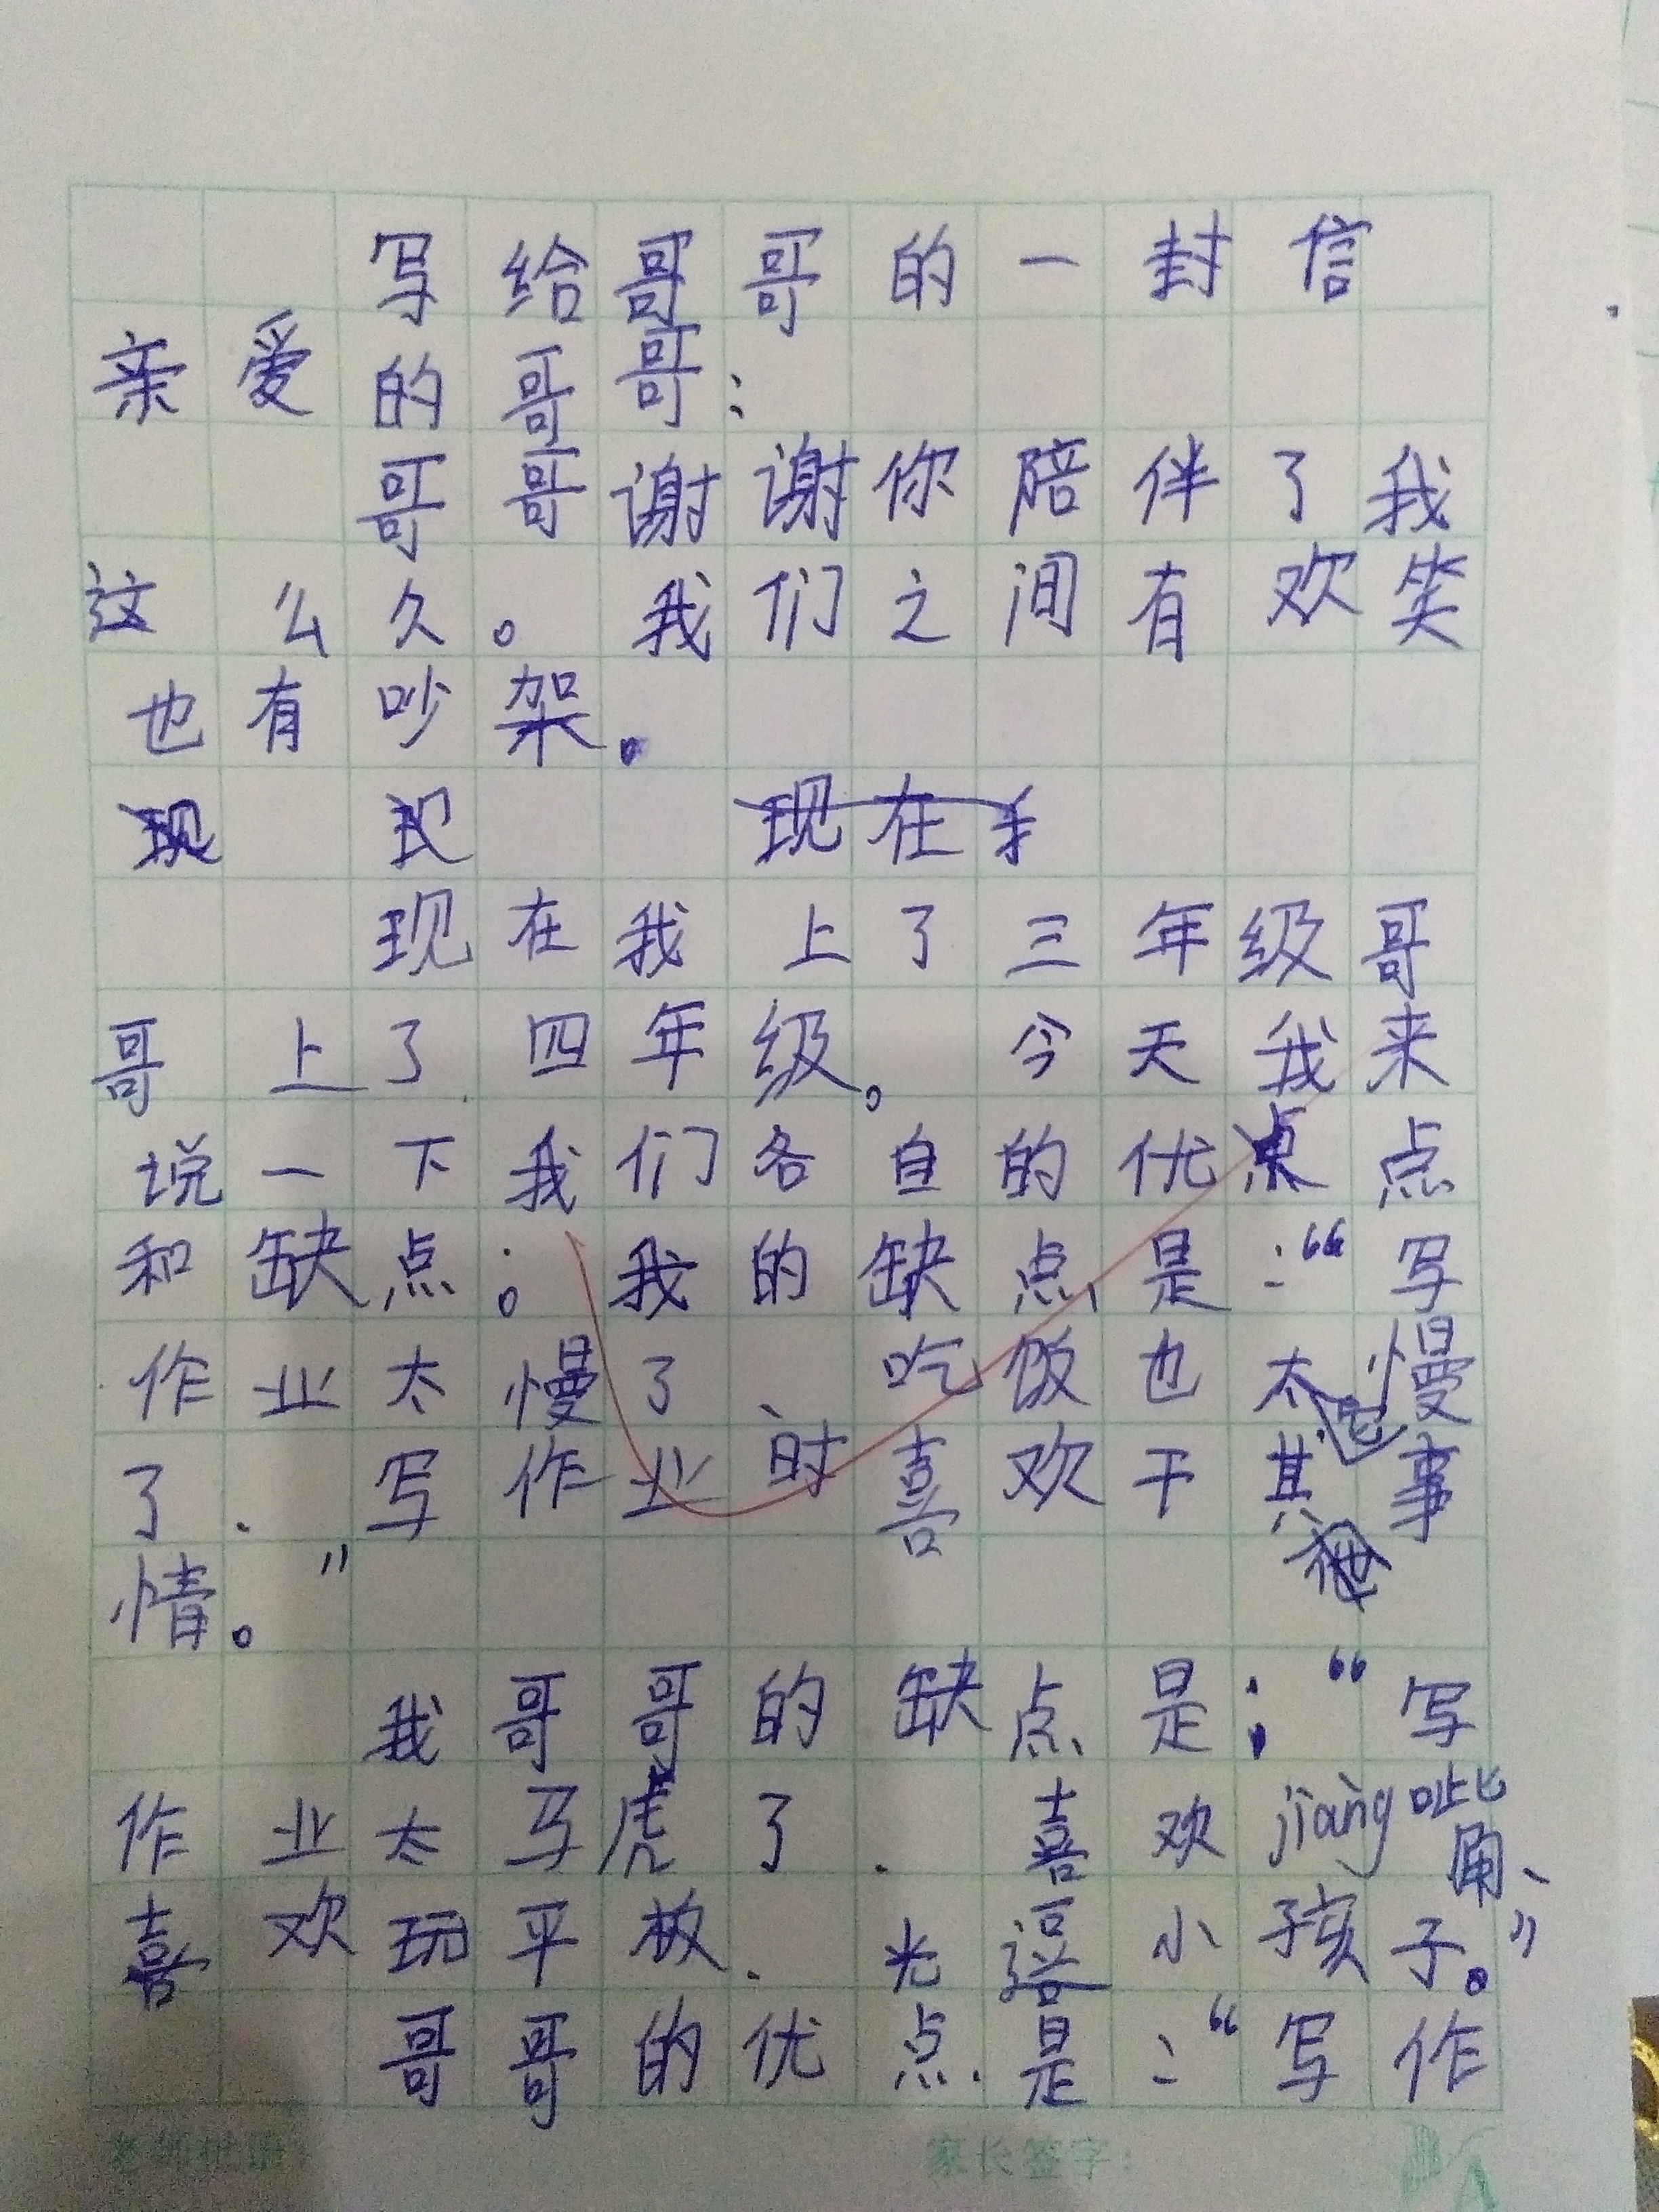 写给哥哥的一封信
亲爱的哥哥：
哥哥谢谢你陪伴了我
这么久。我们之间有欢笑
也有吵架。
现 现在
现在我上了三年级哥
哥上了四年级。今天我来
说一下我们各自的优点
和缺点。我的缺点是：“写
作业太慢了、吃饭也太慢
了．写作业时喜欢干其他事
情。”
我哥哥的缺点是：“写
作业太马虎了．喜欢jiàng嘴、
喜欢玩平板．光逗小孩子。”
哥哥的优点是：“写作
老师批语：
家长签字：